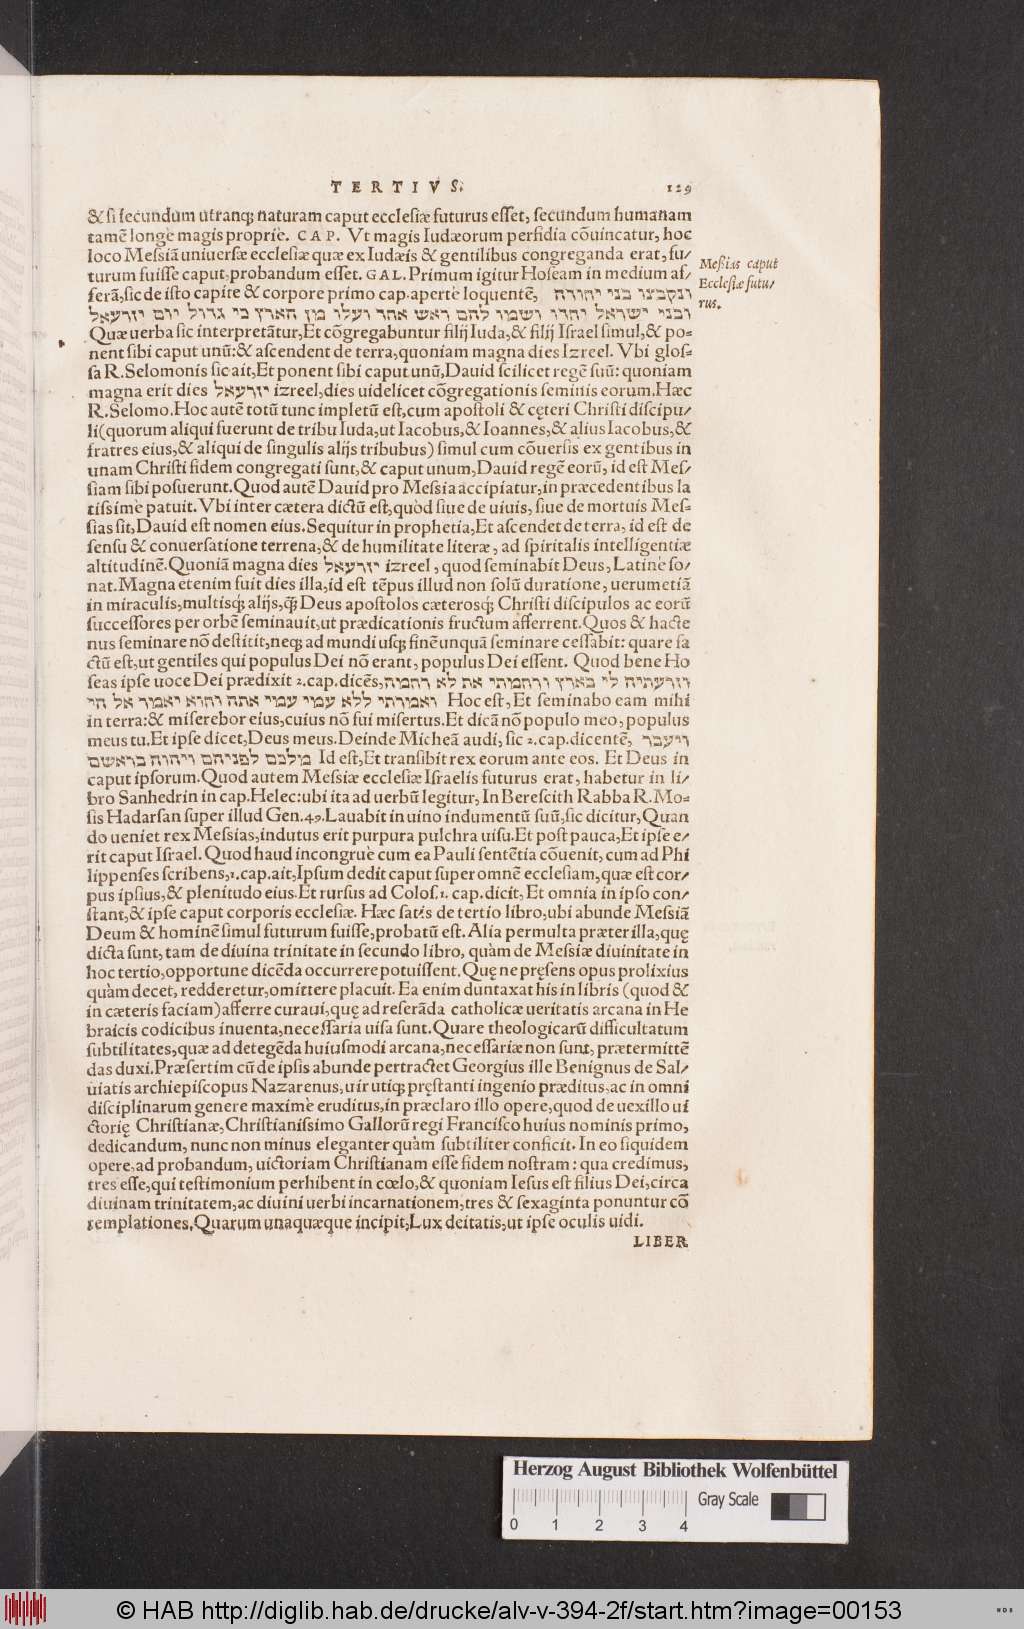 TERTIVS. 129
& si secundum utranq; naturam caput ecclesiæ futurus esset, secundum humanam
tamē longe magis proprie. CAP. Vt magis Iudæorum perfidia cōuincatur, hoc
loco Messiā uniuersæ ecclesiæ quæ ex Iudæis & gentilibus congreganda erat, fu/
turum fuisse caput, probandum esset. GAL. Primum igitur Hoseam in medium af/
ferā, sic de isto capite & corpore primo cap. aperte loquentē, ונקבצו בני יהודה
ובני ישראל יחדו ושמו להם ראש אחד ועלו מן הארץ כי גדול יום יזרעאל
Quæ uerba sic interpretātur, Et cōgregabuntur filij Iuda, & filij Israel simul, & po=
nent sibi caput unū: & ascendent de terra, quoniam magna dies Izreel. Vbi glos=
sa R. Selomonis sic ait, Et ponent sibi caput unū, Dauid scilicet regē suū: quoniam
magna erit dies יזרעאל izreel, dies uidelicet cōgregationis seminis eorum. Hæc
R. Selomo. Hoc autē totū tunc impletū est, cum apostoli & cęteri Christi discipu/
li (quorum aliqui fuerunt de tribu Iuda, ut Iacobus, & Ioannes, & alius Iacobus, &
fratres eius, & aliqui de singulis alijs tribubus) simul cum cōuersis ex gentibus in
unam Christi fidem congregati sunt, & caput unum, Dauid regē eorū, id est Mes/
siam sibi posuerunt. Quod autē Dauid pro Messia accipiatur, in præcedentibus la
tissime patuit. Vbi inter cætera dictū est, quòd siue de uiuis, siue de mortuis Mes=
sias sit, Dauid est nomen eius. Sequitur in prophetia, Et ascendet de terra, id est de
sensu & conuersatione terrena, & de humilitate literæ, ad spiritalis intelligentiæ
altitudinē. Quoniā magna dies יזרעאל izreel, quod seminabit Deus, Latine so/
nat. Magna etenim fuit dies illa, id est tēpus illud non solū duratione, uerumetiā
in miraculis, multisq; alijs, q̄ Deus apostolos cæterosq; Christi discipulos ac eorū
successores per orbē seminauit, ut prædicationis fructum afferrent. Quos & hacte
nus seminare nō destitit, neq; ad mundi usq; finē unquā seminare cessabit: quare fa
ctū est, ut gentiles qui populus Dei nō erant, populus Dei essent. Quod bene Ho
seas ipse uoce Dei prædixit 2. cap. dicēs, וזרעתיה לי בארץ ורחמתי את לא רחמה
ואמרתי ללא עמי עמי אתה והוא יאמר אלהי Hoc est, Et seminabo eam mihi
in terra: & miserebor eius, cuius nō fui misertus. Et dicā nō populo meo, populus
meus tu. Et ipse dicet, Deus meus. Deinde Micheā audi, sic 2. cap. dicentē, ויעבר
מלכם לפניהם ויהוה בראשם Id est, Et transibit rex eorum ante eos. Et Deus in
caput ipsorum. Quod autem Messiæ ecclesiæ Israelis futurus erat, habetur in li/
bro Sanhedrin in cap. Helec: ubi ita ad uerbū legitur, In Berescith Rabba R. Mo=
sis Hadarsan super illud Gen. 49. Lauabit in uino indumentū suū, sic dicitur, Quan
do ueniet rex Messias, indutus erit purpura pulchra uisu. Et post pauca, Et ipse e/
rit caput Israel. Quod haud incongruè cum ea Pauli sentētia cōuenit, cum ad Phi
lippenses scribens, 1. cap. ait, Ipsum dedit caput super omnē ecclesiam, quæ est cor/
pus ipsius, & plenitudo eius. Et rursus ad Colos. 1. cap. dicit, Et omnia in ipso con/
stant, & ipse caput corporis ecclesiæ. Hæc satis de tertio libro, ubi abunde Messiā
Deum & hominē simul futurum fuisse, probatū est. Alia permulta præter illa, quę
dicta sunt, tam de diuina trinitate in secundo libro, quàm de Messiæ diuinitate in
hoc tertio, opportune dicēda occurrere potuissent. Quę ne pręsens opus prolixius
quàm decet, redderetur, omittere placuit. Ea enim duntaxat his in libris (quod &
in cæteris faciam) afferre curaui, quę ad reserāda catholicæ ueritatis arcana in He
braicis codicibus inuenta, necessaria uisa sunt. Quare theologicarū difficultatum
subtilitates, quæ ad detegēda huiusmodi arcana, necessariæ non sunt, prætermittē
das duxi. Præsertim cū de ipsis abunde pertractet Georgius ille Benignus de Sal/
uiatis archiepiscopus Nazarenus, uir utiq; pręstanti ingenio præditus, ac in omni
disciplinarum genere maximè eruditus, in præclaro illo opere, quod de uexillo ui
ctorię Christianæ, Christianissimo Gallorū regi Francisco huius nominis primo,
dedicandum, nunc non minus eleganter quàm subtiliter conficit. In eo siquidem
opere, ad probandum, uictoriam Christianam esse fidem nostram: qua credimus,
tres esse, qui testimonium perhibent in cœlo, & quoniam Iesus est filius Dei, circa
diuinam trinitatem, ac diuini uerbi incarnationem, tres & sexaginta ponuntur cō
templationes. Quarum unaquæque incipit, Lux deitatis, ut ipse oculis uidi.
LIBER
Messias caput
Ecclesiæ futu/
rus.
Herzog August Bibliothek Wolfenbüttel
0 1 2 3 4
Gray Scale
© HAB http://diglib.hab.de/drucke/alv-v-394-2f/start.htm?image=00153